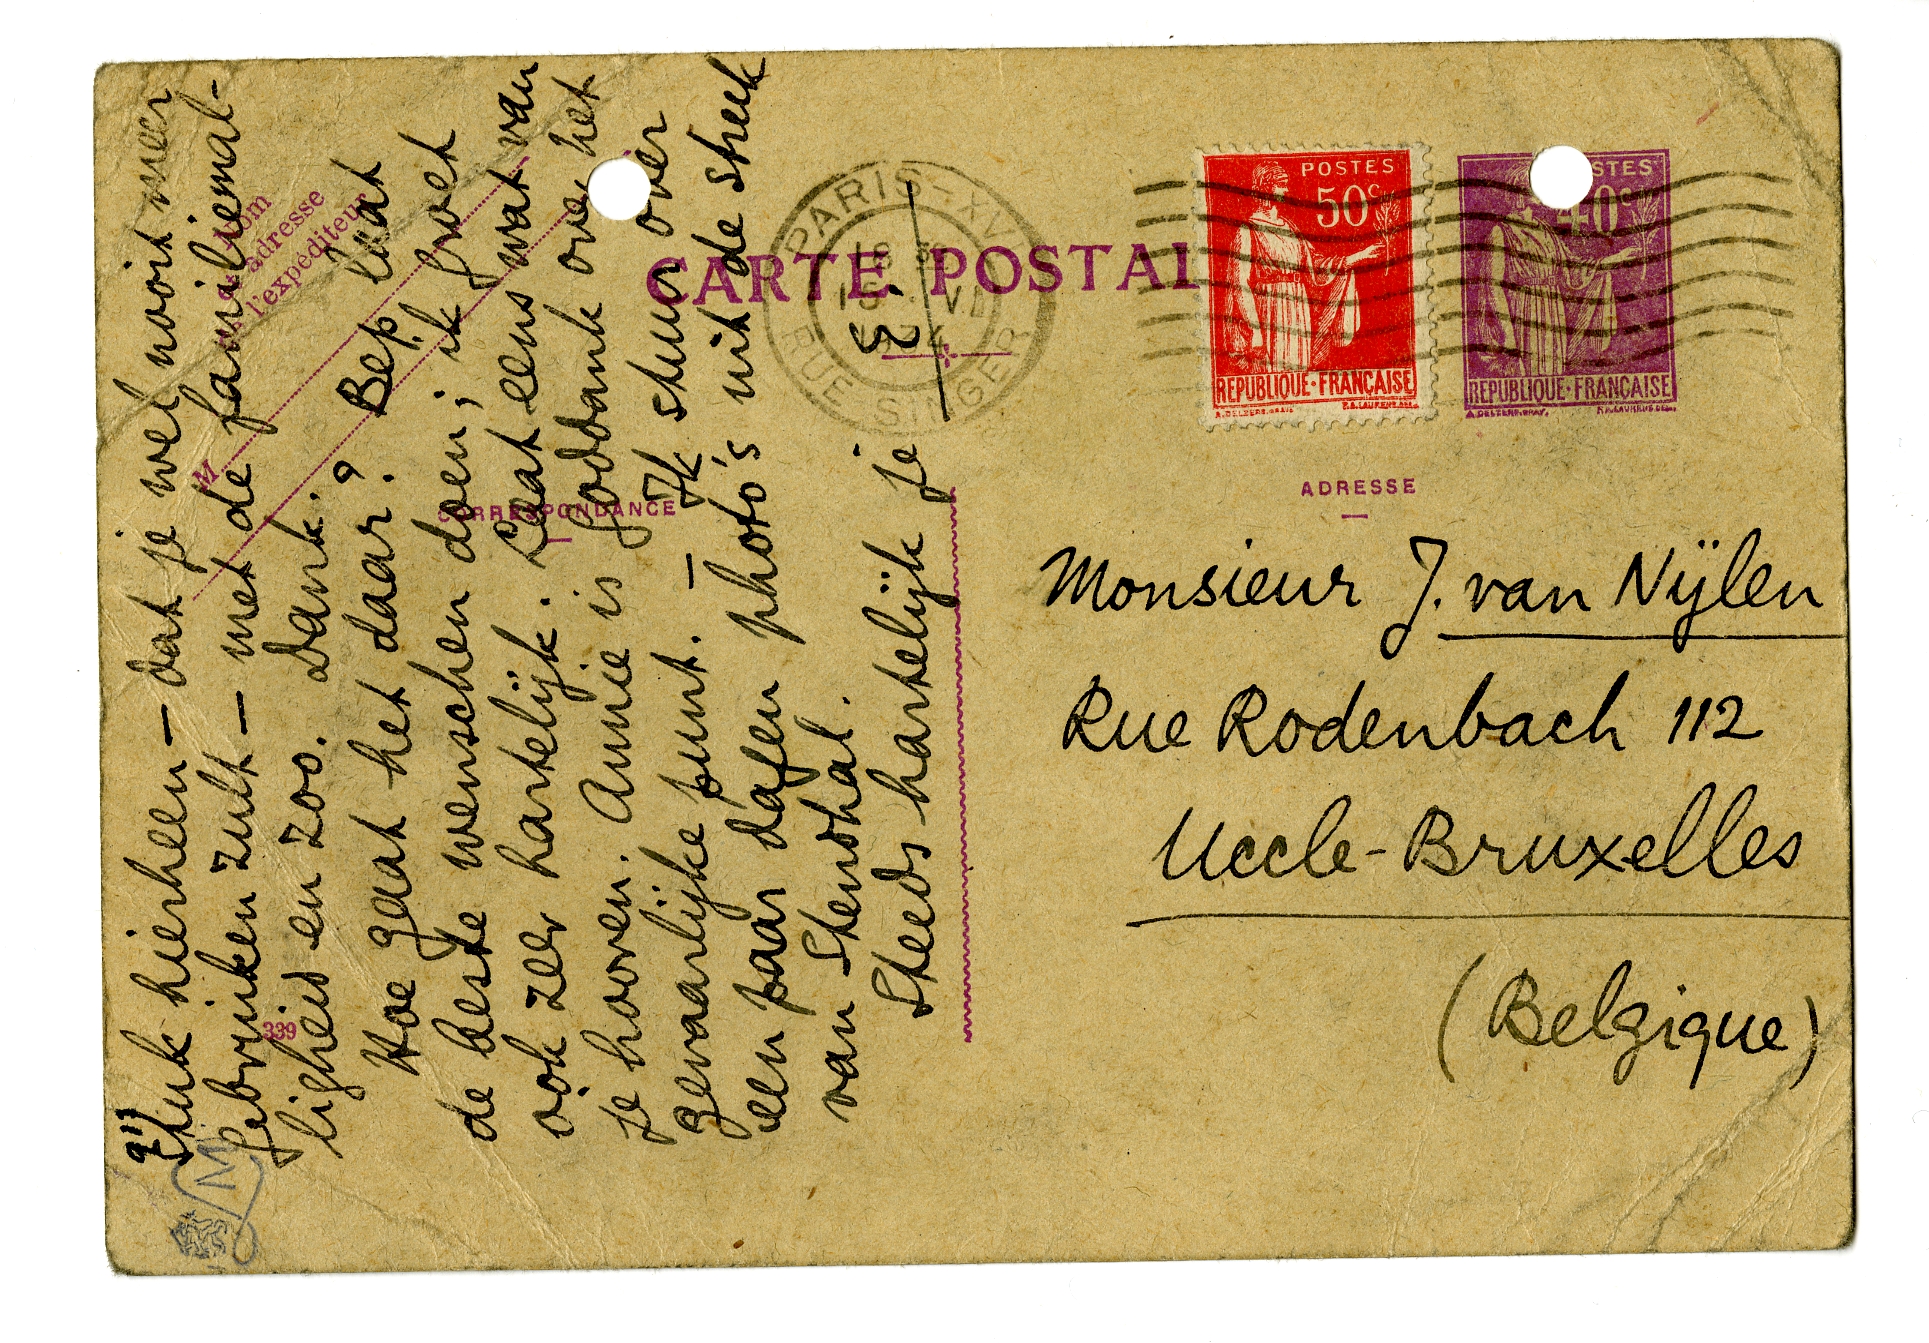 stuk hierheen – dat je wel nooit meer
gebruiken zult – met de familiemat-
ligheid en zoo. Dank.
Hoe gaat het daar? Bep laat
de beste wenschen doen; ik groet
ook zeer hartelijk. Laat eens wat van
je hooren. Annie is goddank over het
gevaarlijke punt. – Ik stuur over
een paar dagen photo's uit de streek
van Stendhal.
Steeds hartelijk je
E.
Nom
adresse
l'expéditeur
M
CARTE POSTALE
CORRESPONDANCE
339
M
PARIS-XVI
RUE SINGER
POSTES
50c
REPUBLIQUE·FRANÇAISE
POSTES
40c
REPUBLIQUE·FRANÇAISE
ADRESSE
Monsieur J. van Nijlen
Rue Rodenbach 112
Uccle-Bruxelles
(Belgique)